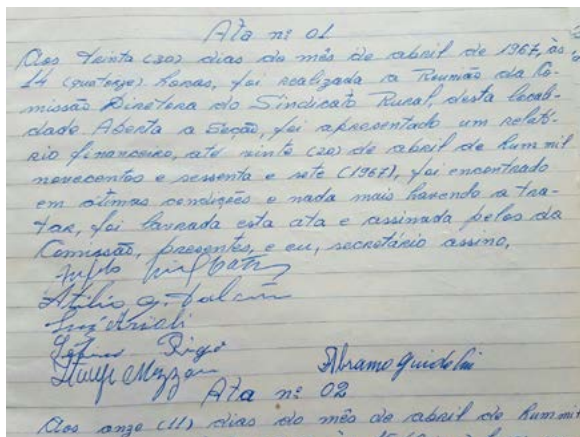 Ata nº 01
Aos trinta (30) dias do mês de abril de 1967, às
14 (quatorze) horas, foi realizada a Reunião da Co-
missão Diretora do Sindicato Rural, desta locali-
dade Aberta a Seção, foi apresentado um relató-
rio financeiro, até vinte (20) de abril de hum mil
novecentos e sessenta e sete (1967), foi encontrado
em otimas condições e nada mais havendo a tra-
tar, foi lavrada esta ata e assinada pelos da
Comissão, presentes, e eu, secretário assino,
Atilio
Luiz
Abramo Guidolin
Ata nº 02
Aos onze (11) dias do mês de abril de hum mil